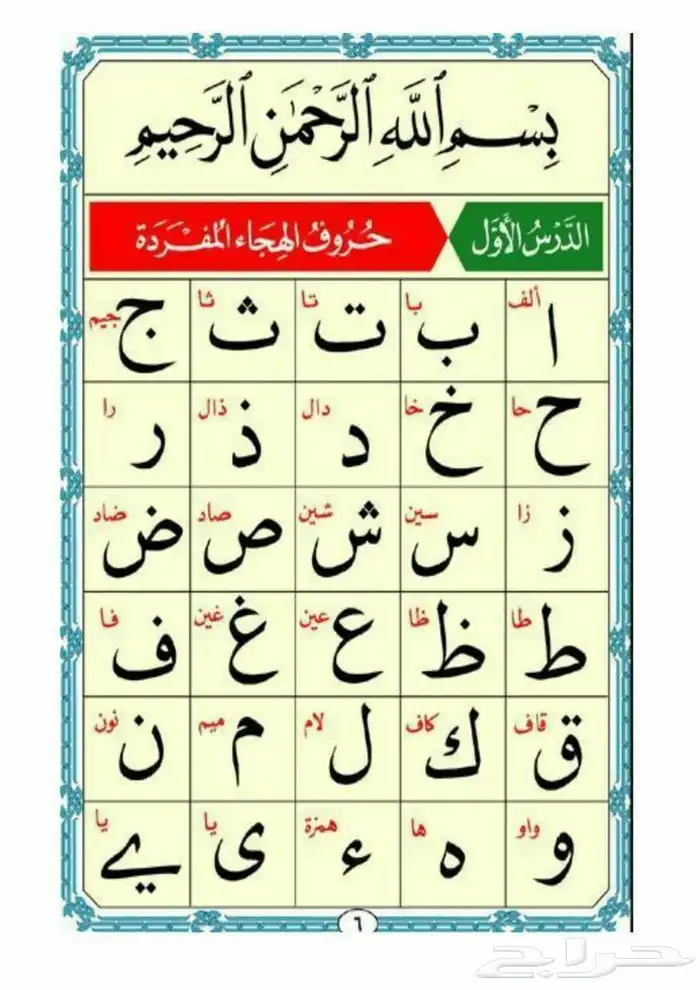 بِسْمِ ٱللَّهِ ٱلرَّحْمَٰنِ ٱلرَّحِيمِ
الدَّرْسُ الأَوَّل حُرُوفُ الهِجَاء المُفْرَدَة
ألف ا با ب تا ت ثا ث جيم ج
حا ح خا خ دال د ذال ذ را ر
زا ز سين س شين ش صاد ص ضاد ض
طا ط ظا ظ عين ع غين غ فا ف
قاف ق كاف ك لام ل ميم م نون ن
واو و ها ه همزة ء يا ى يا ے
٦
حراج